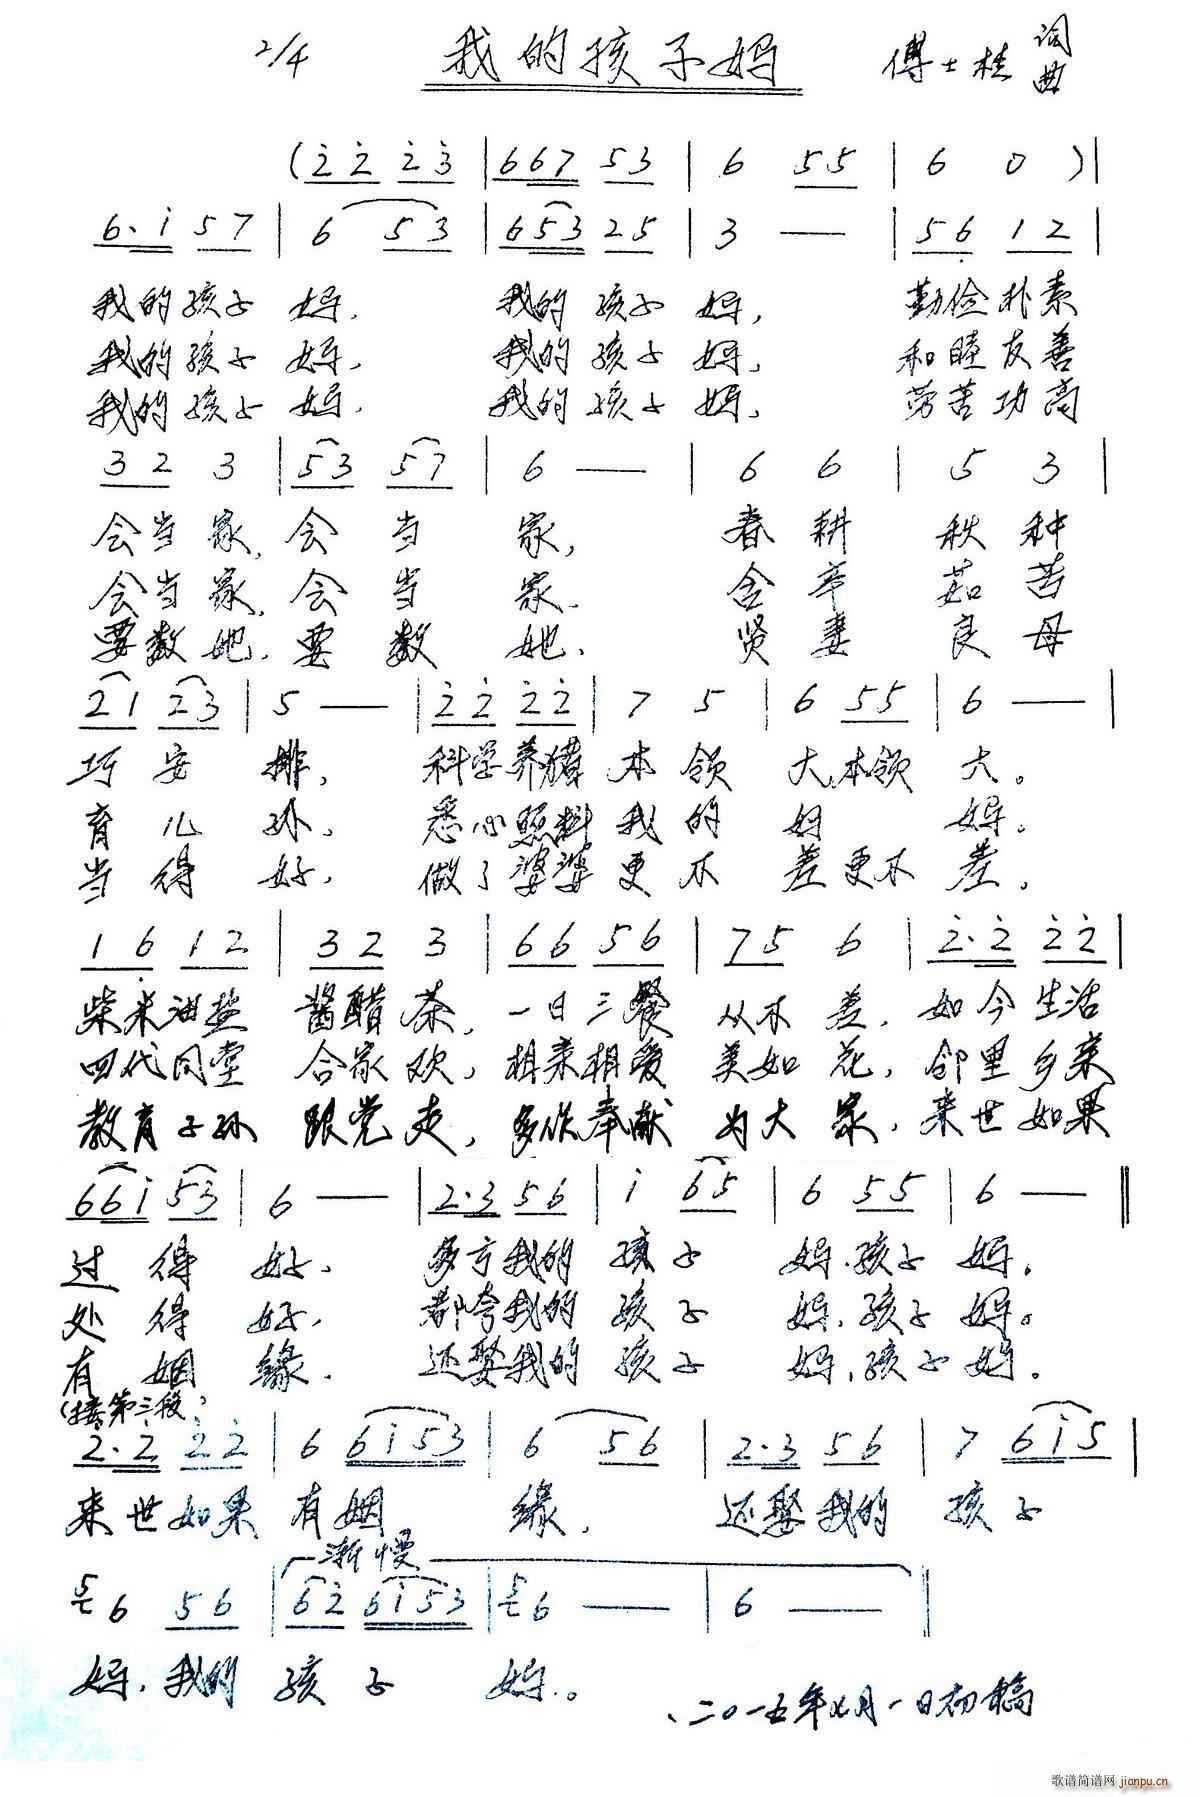 2/4 我的孩子妈 傅士桂 词曲
(2̇ 2̇ 2̇ 3̇ | 6 6 7 5 3 | 6 5 5 | 6 0 ) |
6. i 5 7 | 6 5 3 | 6 5 3 2 5 | 3 — | 5 6̣ 1 2 |
我的孩子 妈, 我的孩子 妈, 勤俭朴素
我的孩子 妈, 我的孩子 妈, 和睦友善
我的孩子 妈, 我的孩子 妈, 劳苦功高
3 2 3 | 5 3 5 7 | 6 — | 6 6 | 5 3 |
会当家, 会当家, 春耕秋种
会当家, 会当家, 含辛茹苦
要数她, 要数她, 贤妻良母
2 1 2 3 | 5 — | 2̇ 2̇ 2̇ 2̇ | 7 5 | 6 5 5 | 6 — |
巧安排, 科学养猪本领大本领大。
育儿孙, 悉心照料我的妈妈。
当得好, 做了婆婆更不差更不差。
1 6̣ 1 2 | 3 2 3 | 6 6 5 6 | 7 5 6 | 2̇. 2̇ 2̇ 2̇ |
柴米油盐 酱醋茶, 一日三餐 从不差, 如今生活
四代同堂 合家欢, 相亲相爱 美如花, 邻里乡亲
教育子孙 跟党走, 多做奉献 为大家, 来世如果
6 6 i 5 3 | 6 — | 2. 3 5 6 | i 6 5 | 6 5 5 | 6 — ‖
过得好, 多亏我的孩子妈, 孩子妈。
处得好, 都夸我的孩子妈, 孩子妈。
有姻缘, 还娶我的孩子妈, 孩子妈。
(接第三段)
2̇. 2̇ 2̇ 2̇ | 6 6 i 5 3 | 6 5 6 | 2. 3 5 6 | 7 6 i 5 |
来世如果 有姻缘, 还娶我的 孩子
渐慢
5 6 5 6 | 6 2̇ 6 i 5 3 | 5 6 — | 6 — ‖
妈, 我的孩子妈。
二〇一五年七月一日初稿
歌谱简谱网 jianpu.cn